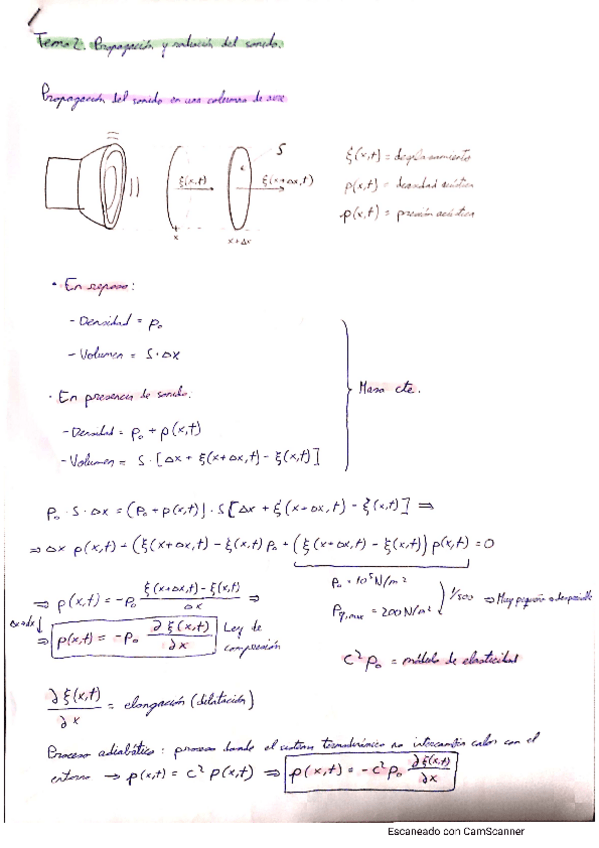 Tema 2. Propagación y radiación del sonido.
Propagación del sonido en una columna de aire
S
ξ(x,t)
ξ(x+Δx,t)
x
x+Δx
ξ(x,t) = desplazamiento
ρ(x,t) = densidad acústica
p(x,t) = presión acústica
• En reposo:
- Densidad = ρ₀
- Volumen = S·Δx
• En presencia de sonido.
- Densidad = ρ₀ + ρ(x,t)
- Volumen = S·[Δx + ξ(x+Δx,t) - ξ(x,t)]
Masa cte.
ρ₀·S·Δx = (ρ₀ + ρ(x,t))·S[Δx + ξ(x+Δx,t) - ξ(x,t)] ⇒
⇒ Δx ρ(x,t) + (ξ(x+Δx,t) - ξ(x,t) ρ₀ + (ξ(x+Δx,t) - ξ(x,t)) ρ(x,t) = 0
⇒ ρ(x,t) = -ρ₀ (ξ(x+Δx,t) - ξ(x,t))/Δx ⇒
P₀ = 10⁵ N/m²
= 200 N/m²
1/500 ⇒ Muy pequeño → despreciable
⇒ ρ(x,t) = -ρ₀ ∂ξ(x,t)/∂x
Ley de
compresión
c²ρ₀ = módulo de elasticidad
∂ξ(x,t)/∂x = elongación (dilatación)
Proceso adiabático: proceso donde el sistema termodinámico no intercambia calor con el
entorno → p(x,t) = c² ρ(x,t) ⇒ p(x,t) = -c²ρ₀ ∂ξ(x,t)/∂x
Escaneado con CamScanner